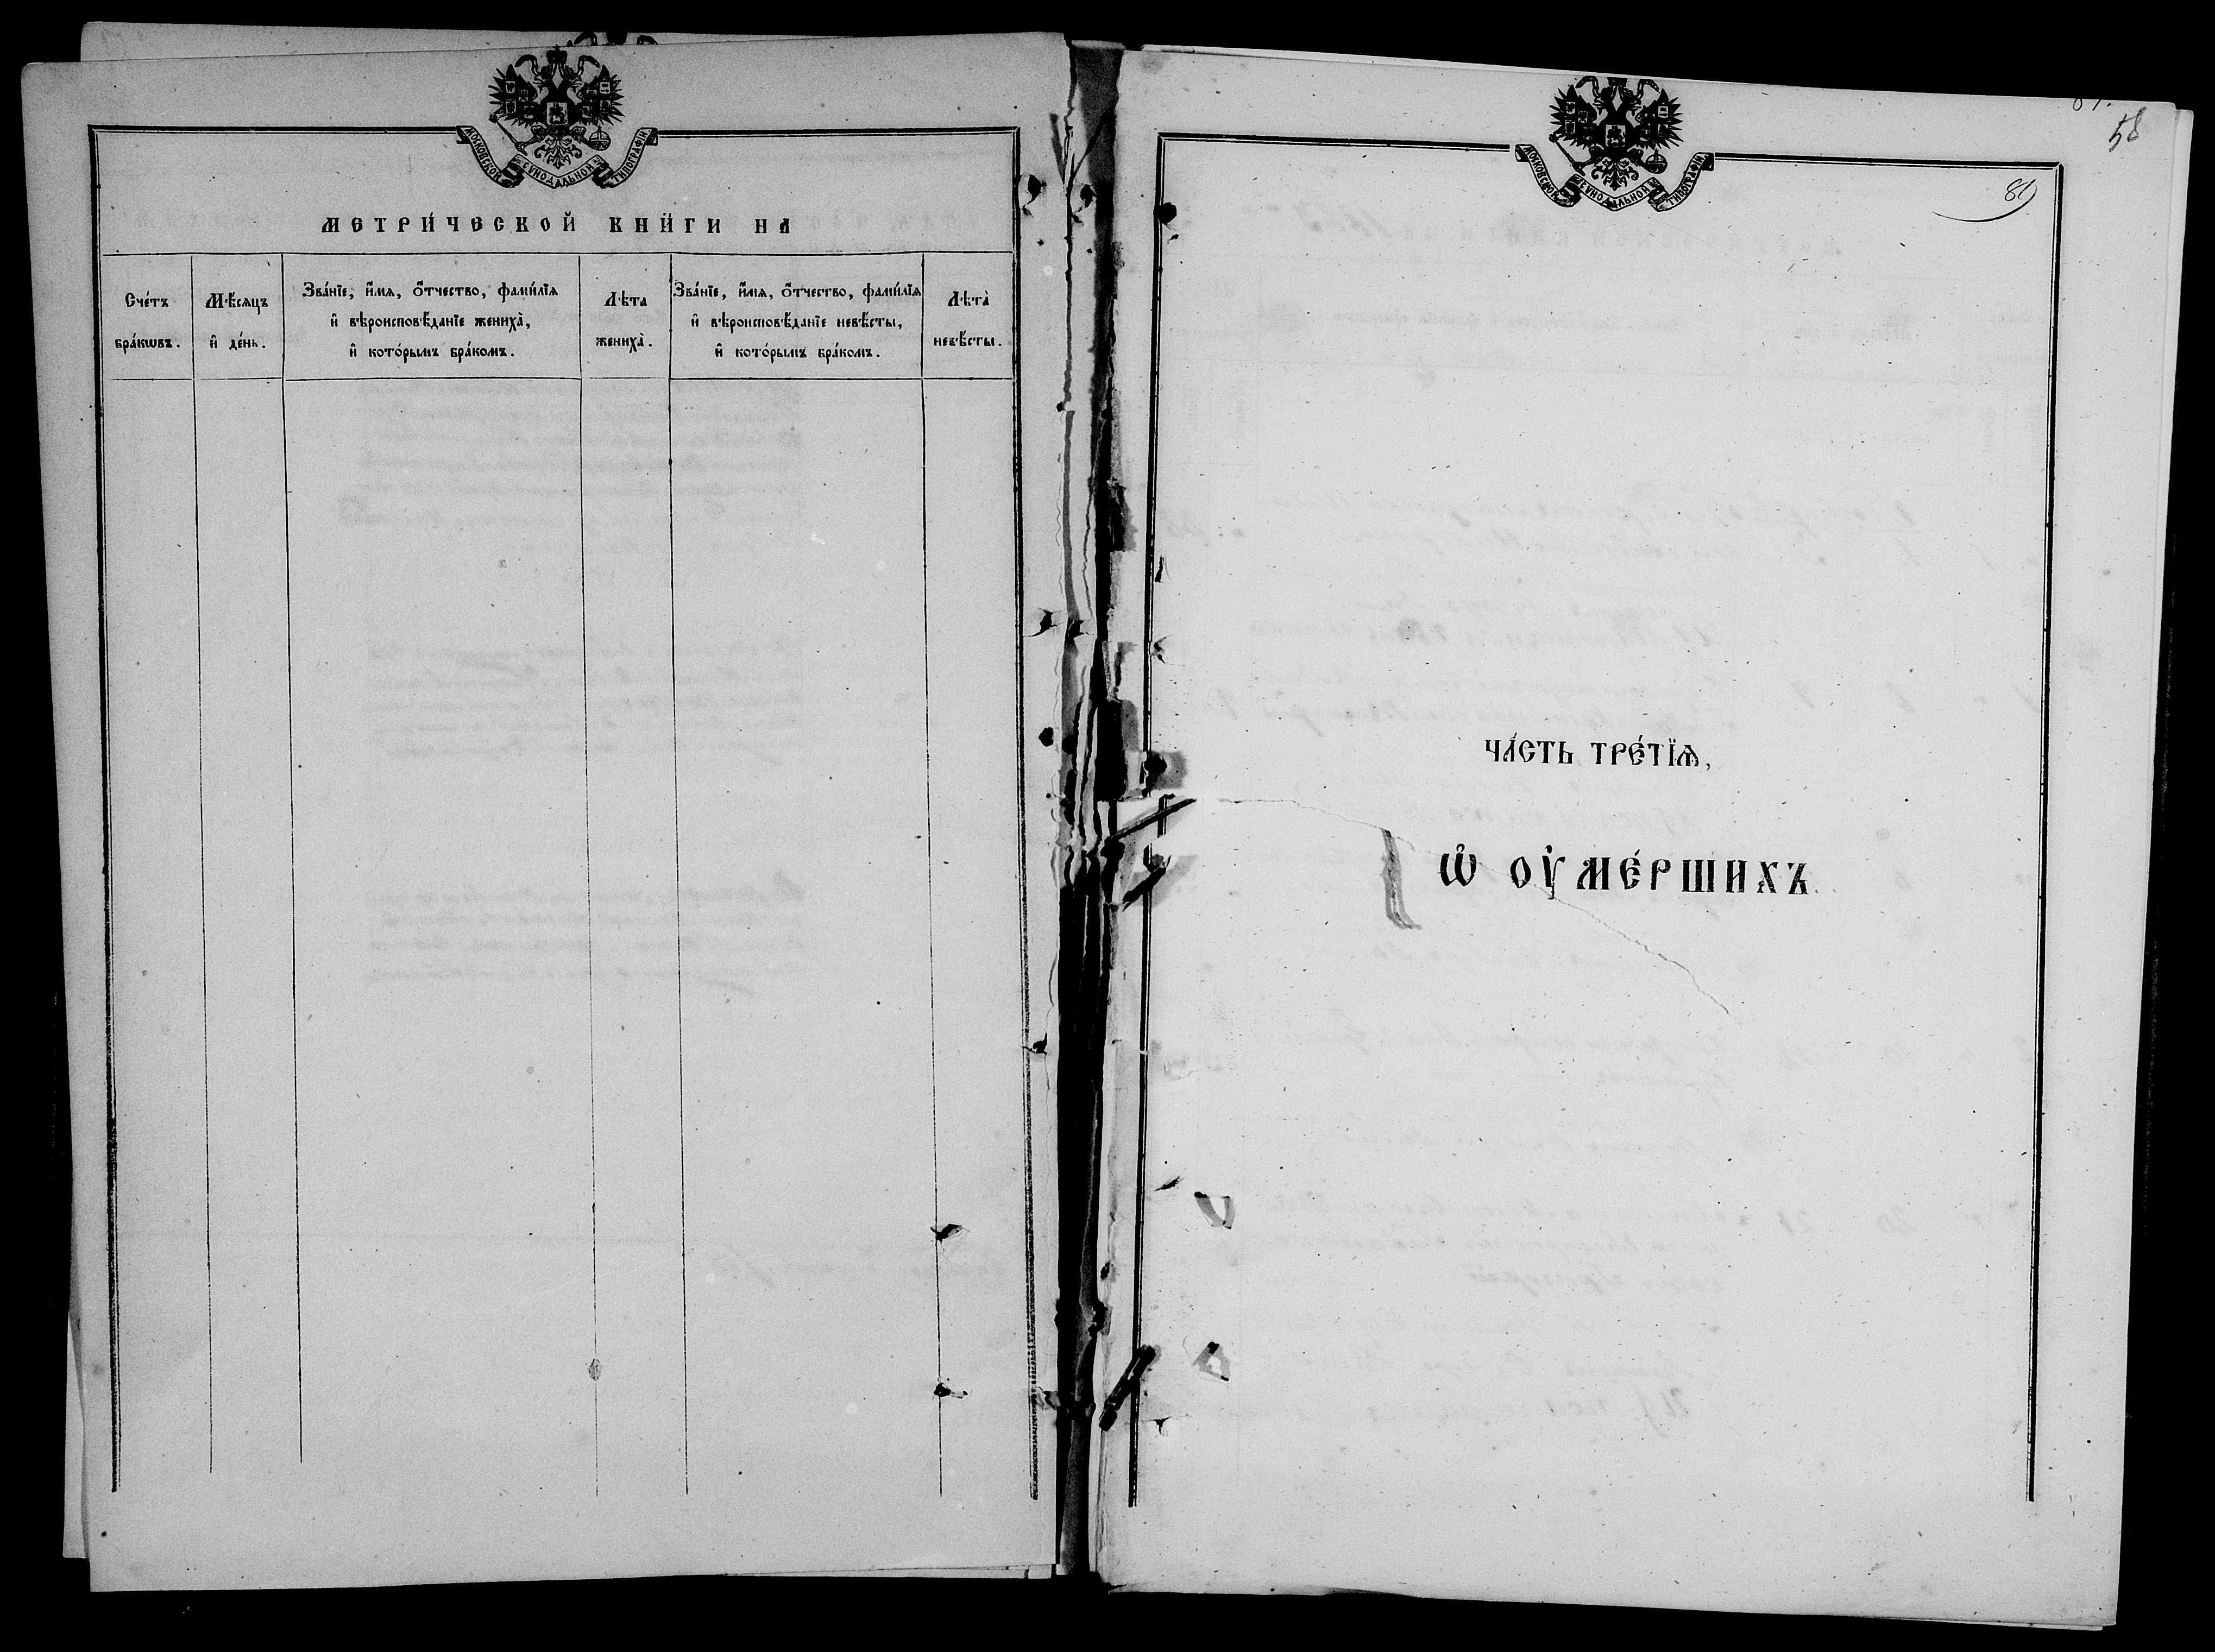 МОСКОВСКОЙ СѴНОДАЛЬНОЙ ТИПОГРАФІИ
МЕТРИ́ЧЕСКОЙ КНИ́ГИ НА
Сче́тъ
бра́кѡвъ.
Мѣ́сяцъ
и҆ де́нь.
Зва́нїе, и҆́мя, ѻ҆́тчество, фами́лїя
и҆ вѣроисповѣ́данїе жениха̀,
и҆ кото́рымъ бра́комъ.
Лѣта
жениха̀.
Зва́нїе, и҆́мя, ѻ҆́тчество, фами́лїя
и҆ вѣроисповѣ́данїе невѣ́сты,
и҆ кото́рымъ бра́комъ.
Лѣта̀
невѣ́сты.
МОСКОВСКОЙ СѴНОДАЛЬНОЙ ТИПОГРАФІИ
58
ЧА́СТЬ ТРЕ́ТЇѦ,
Ѡ҆ ОУ҆МЕ́РШИХЪ